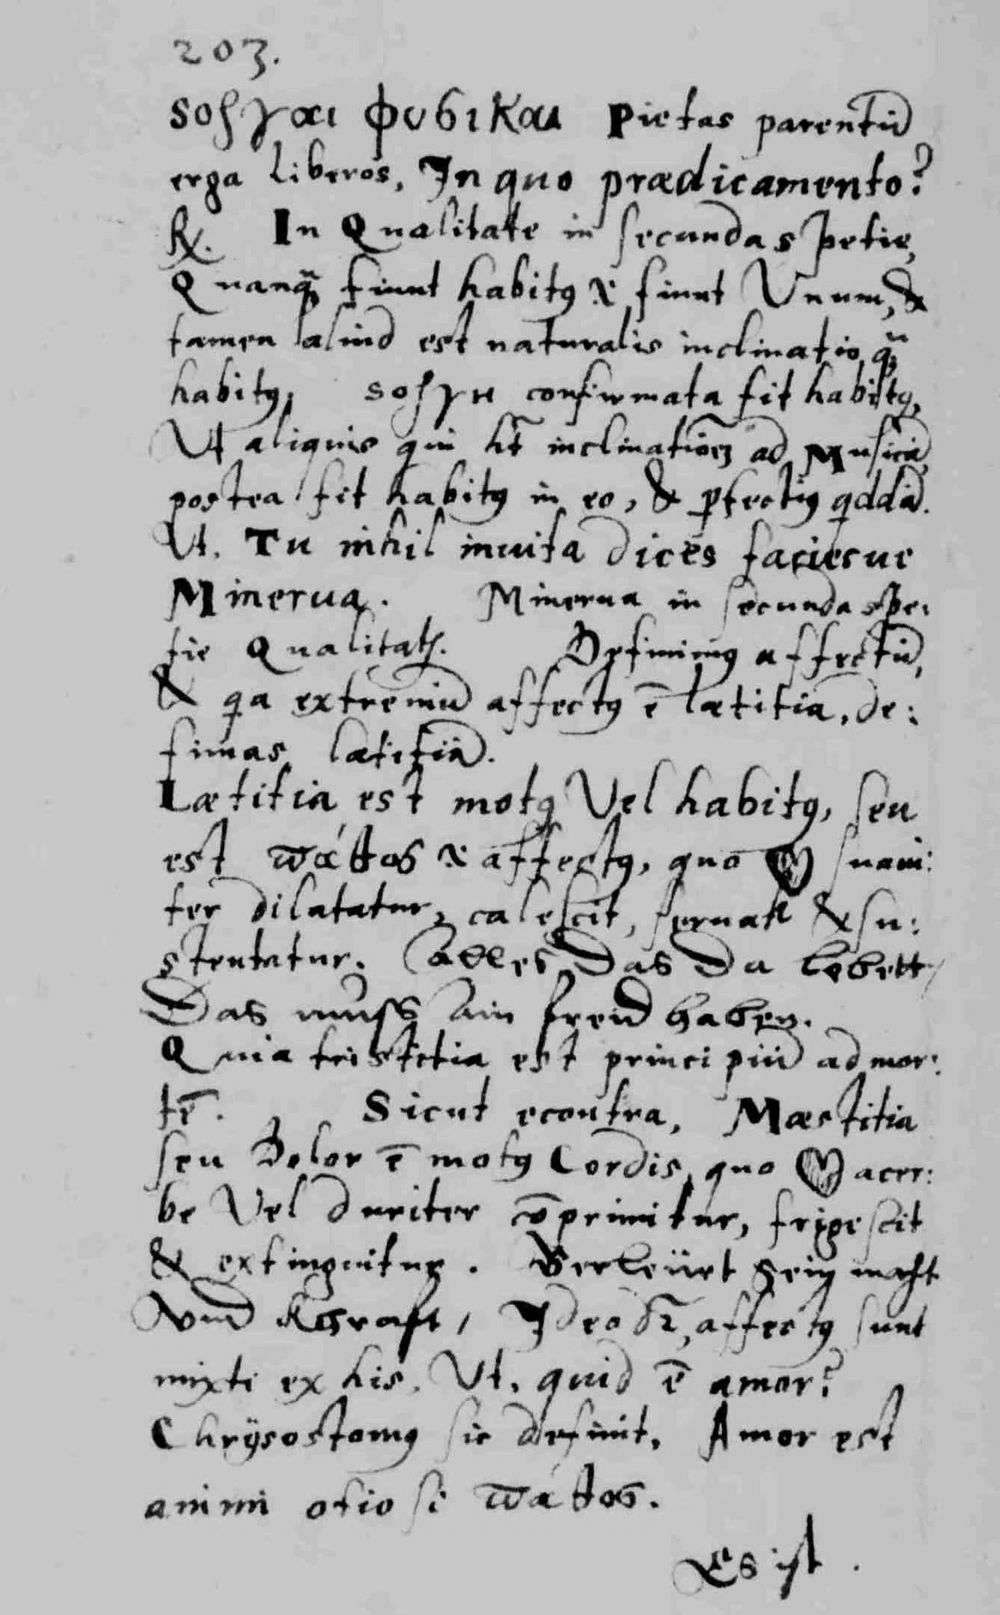 203.
soϩγαι φυσικαι Pietas parentũ
erga liberos, In quo prædicamento?
℞. In Qualitate in secunda spetie,
Quanq̃ fiunt habitꝰ & fiunt Unum, &
tamen aliud est naturalis inclinatio q̃
habitꝰ, confirmata fit habitꝰ,
Ut aliquis qui ht̃ inclinatiõem ad Musicã,
postea fit habitꝰ in eo, & ꝑfectiꝰ qddã.
Ut. Tu nihil inuita dices faciesue
Minerua. Minerua in secunda spe:
tie Qualitatis. Definimꝰ affectũ,
& qa extremũ affectꝰ ẽ lætitia, de:
finias lætitiã.
Lætitia est motꝰ Vel habitꝰ, seu
est πάθος & affectꝰ, quo ♥ suaui:
ter dilatatur, calescit, seruatr & su:
stentatur. Alles das da lebett /
Das muss ain freud haben.
Quia tristitia est principiũ ad mor:
tẽ. Sicut econtra, Mæstitia
seu Dolor ẽ motꝰ Cordis, quo ♥ acer:
be Vel duriter cõprimitur, frigescit
& extinguitur. Verleürt sein macht
vnd khrafft / Ideo affectꝰ sunt
mixti ex his. Ut, quid ẽ amor?
Chrÿsostomꝰ sic definit. Amor est
animi otiosi πάθος.
Es ist.